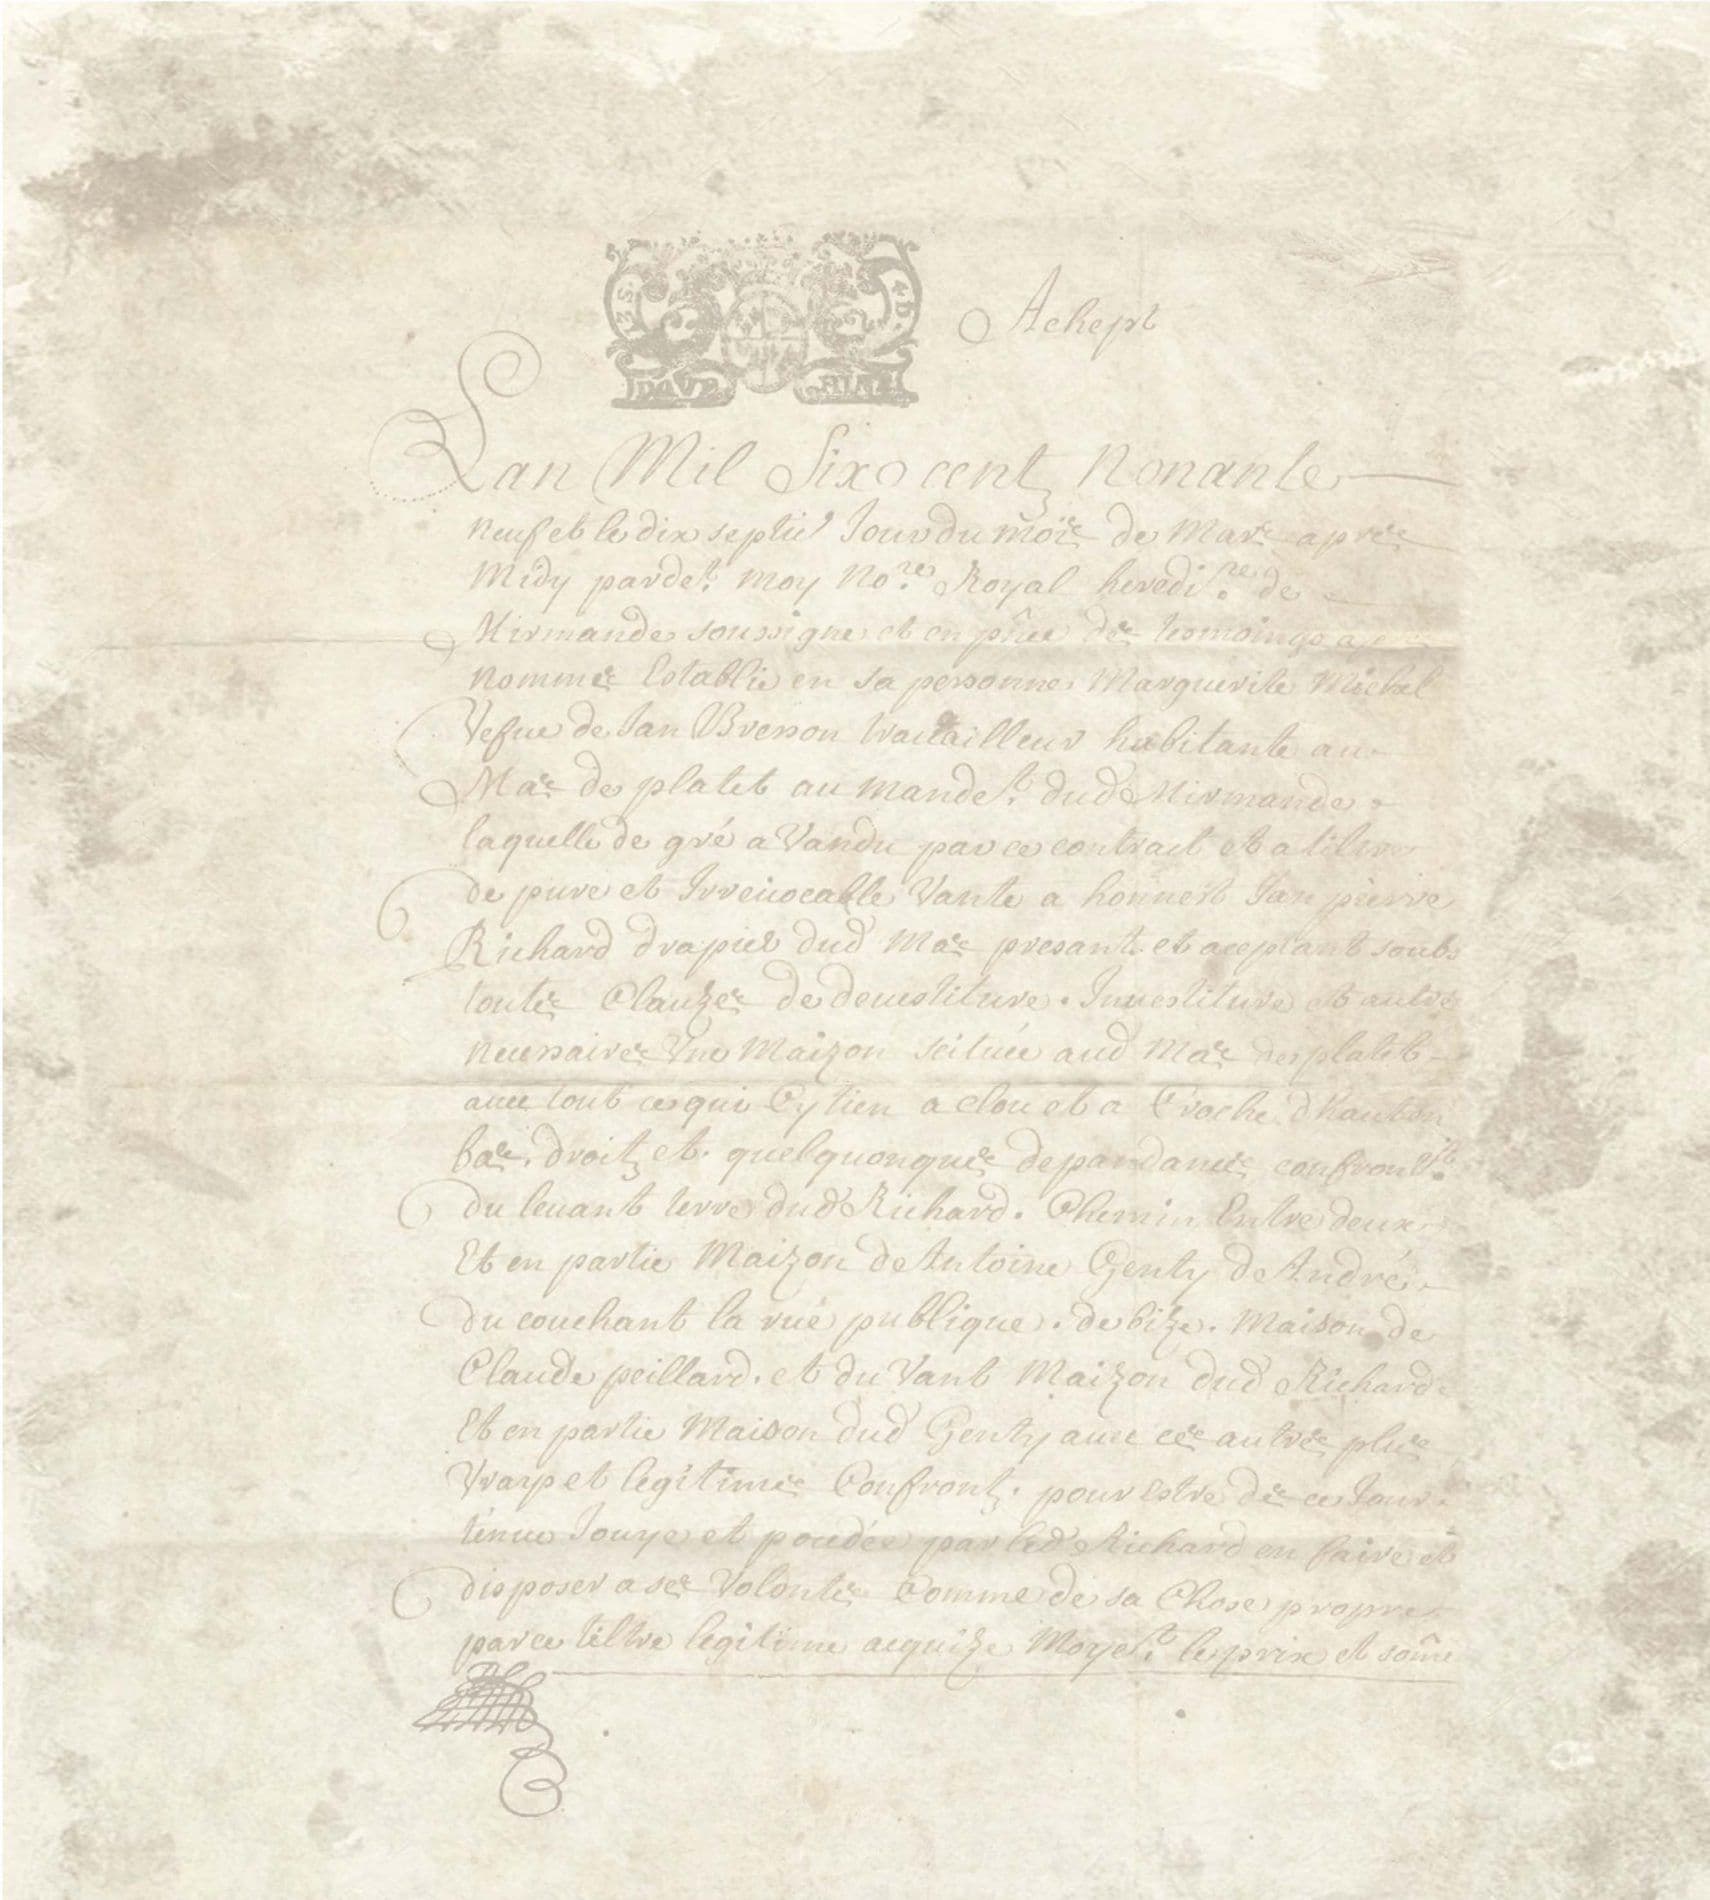 2 S 4 D
DAVP HINE
Achept
Lan Mil Sixcentz Nonante
neuf et le dix septie' Jour du mois de Mars apres
Midy pardet. moy Nore. Royal heredire. de
Mirmande soussigne et en pñce des tesmoings
nommes Establie en sa personne Marguerite Michel
Vefue de Jan Bresson travailleur habitante au
Mas de platet au mandet. dud Mirmande
laquelle de gré a Vandu par ce contract et a tiltre
de pure et Irreuocable Vante a honnest Jan pierre
Richard drapier dud Mas presant et aceptant soubs
toutes Clauzes de deuestiture. Inuestiture et autre
necessaires Vne Maizon scituée aud Mas de platet
auec tout ce qui Cy tien a clou et a Croche d'haut en
bas. droitz et. quelquonques depandances confrontt.
du leuant terre dud Richard. Chemin Entre deux
Et en partie Maizon de Antoine Genty de André
du couchant la rue publique. de bize. Maison de
Claude peillard. et du Vant Maizon dud Richard
Et en partie Maison dud Genty auec ces autres plus
Vrayp et legitimes Confrontz. pour Estre des ce Jour
tenue Jouye et possédée par led Richard en faire et
disposer a ses Volontes Comme de sa Chose propre
par ce tiltre legitime acquize Moyet. le prix et som̃e